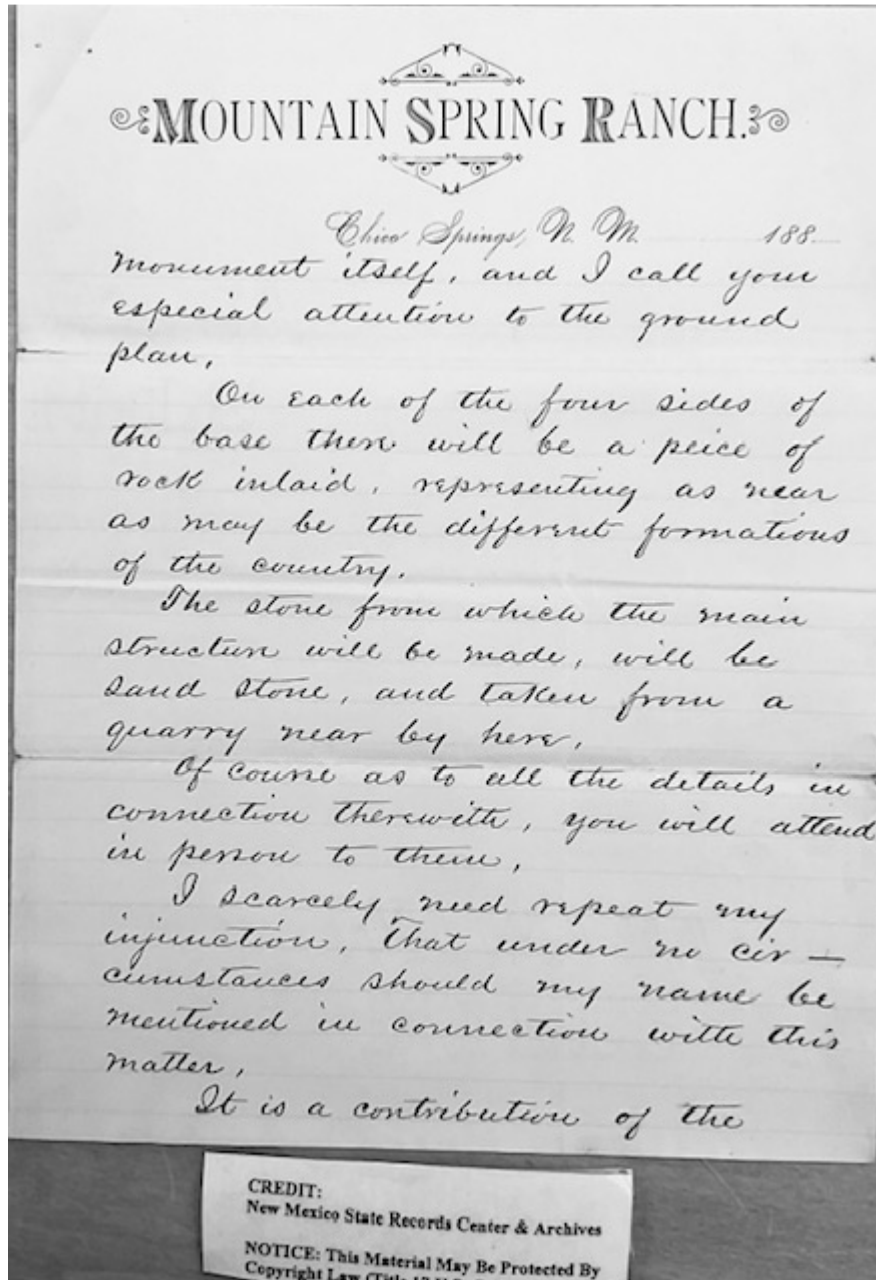 MOUNTAIN SPRING RANCH.
Chico Springs, N. M. 188
monument itself, and I call your
especial attention to the ground
plan.
On each of the four sides of
the base there will be a peice of
rock inlaid, representing as near
as may be the different formations
of the country.
The stone from which the main
structure will be made, will be
sand stone, and taken from a
quarry near by here.
Of course as to all the details in
connection therewith, you will attend
in person to them.
I scarcely need repeat my
injunction, That under no cir—
cumstances should my name be
mentioned in connection with this
matter.
It is a contribution of the
CREDIT:
New Mexico State Records Center & Archives
NOTICE: This Material May Be Protected By
Copyright Law (Title